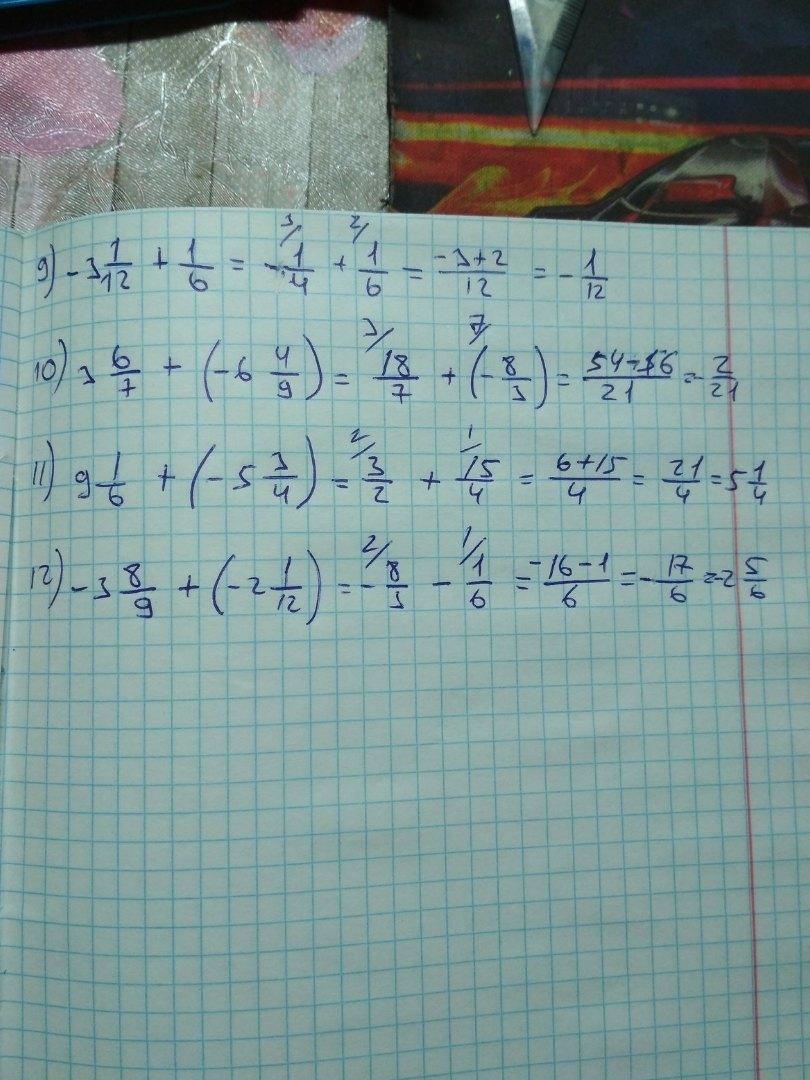 9) -3 1/12 + 1/6 = -1/4 3/ + 1/6 2/ = (-3+2)/12 = -1/12
10) 3 6/7 + (-6 4/9) = 18/7 3/ + (-8/3) 7/ = (54-56)/21 = -2/21
11) 9 1/6 + (-5 3/4) = 3/2 2/ + 15/4 1/ = (6+15)/4 = 21/4 = 5 1/4
12) -3 8/9 + (-2 1/12) = -8/3 2/ - 1/6 1/ = (-16-1)/6 = -17/6 = -2 5/6